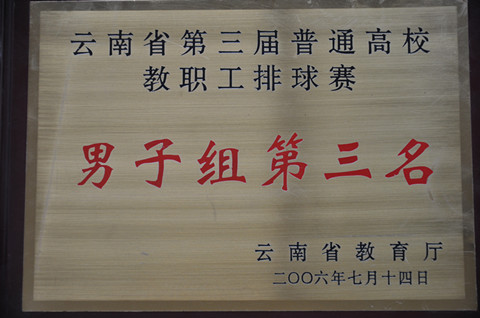 云南省第三届普通高校
教职工排球赛
男子组第三名
云南省教育厅
二〇〇六年七月十四日